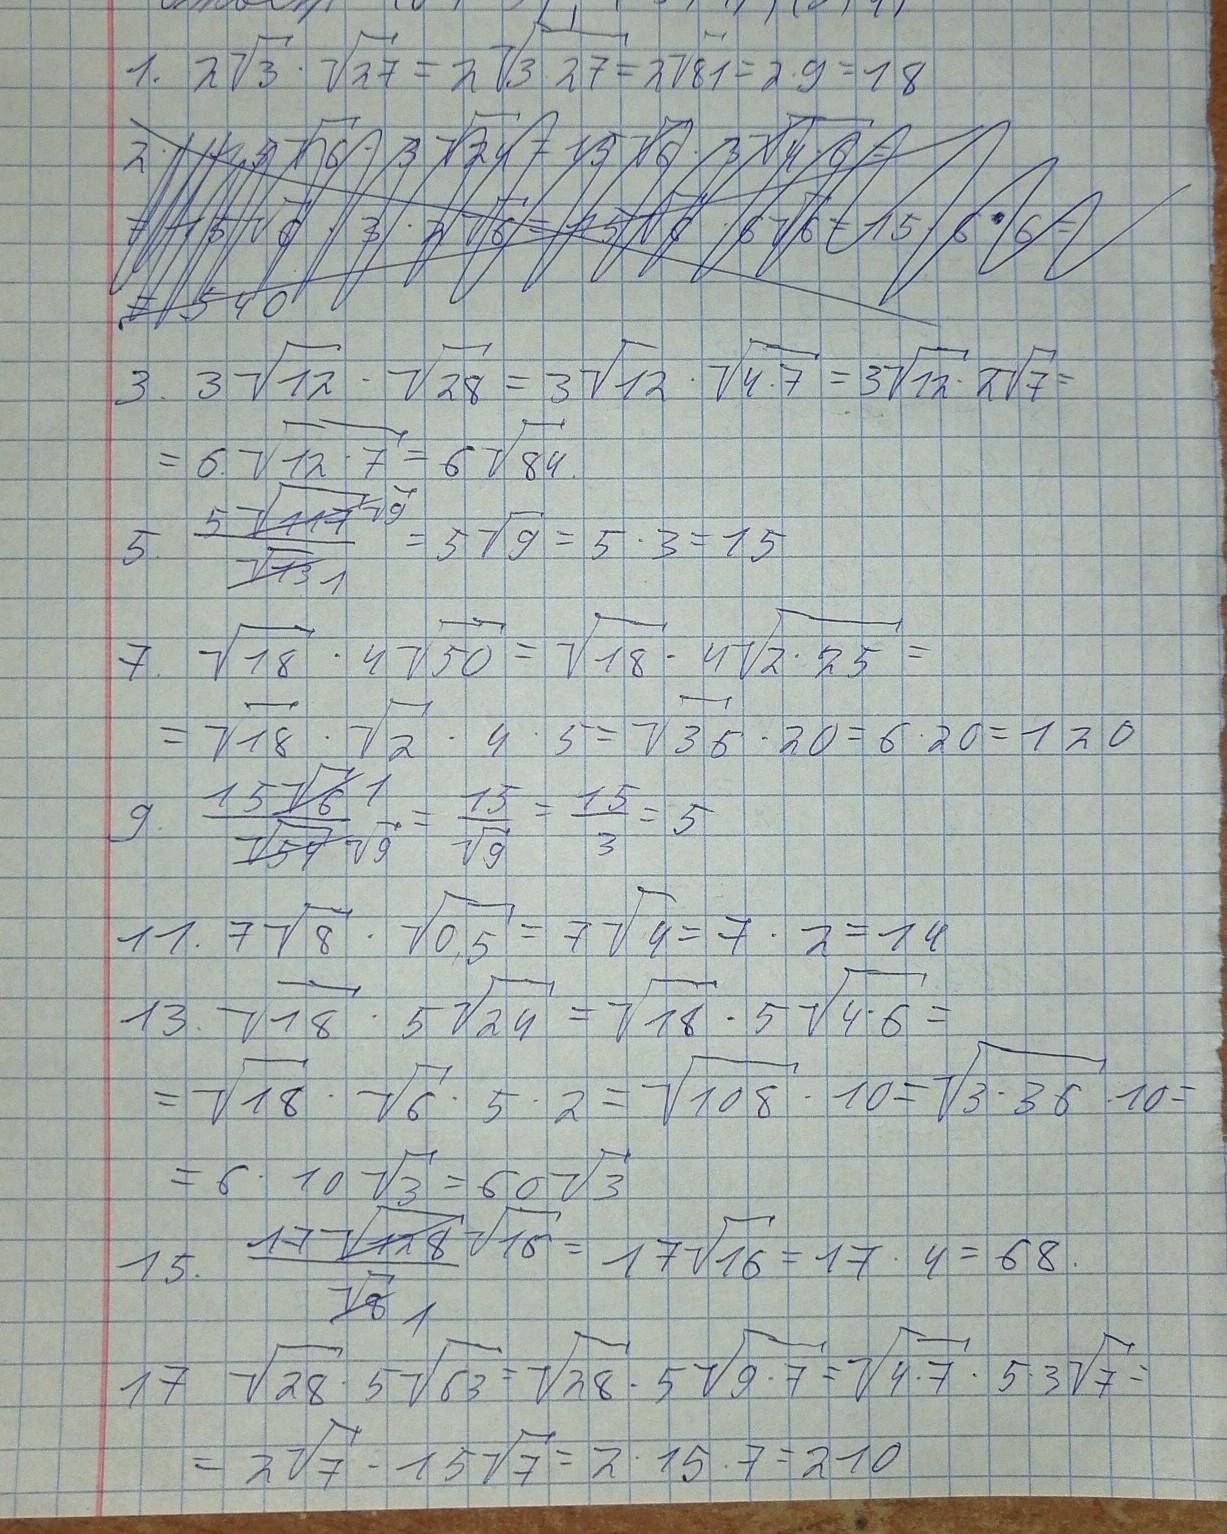 1. 2√3 · √27 = 2√3·27 = 2√81 = 2·9 = 18
= 540
3. 3√12 · √28 = 3√12 · √4·7 = 3√12 · 2√7 =
= 6·√12·7 = 6√84.
5. 5√117 √9 / √13 1 = 5√9 = 5·3 = 15
7. √18 · 4√50 = √18 · 4√2·25 =
= √18 · √2 · 4 · 5 = √36 · 20 = 6·20 = 120
9. 15√6 1 / √54 √9 = 15/√9 = 15/3 = 5
11. 7√8 · √0,5 = 7√4 = 7 · 2 = 14
13. √18 · 5√24 = √18 · 5√4·6 =
= √18 · √6 · 5 · 2 = √108 · 10 = √3·36 · 10 =
= 6 · 10√3 = 60√3
15. 17√128 √16 / √8 1 = 17√16 = 17 · 4 = 68.
17 √28 · 5√63 = √28 · 5√9·7 = √4·7 · 5·3√7 =
= 2√7 · 15√7 = 2·15·7 = 210